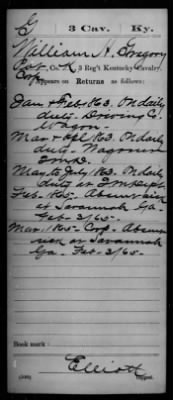 G 3 Cav. Ky.
William H. Gregory
Pvt., Co. K, 3 Reg't Kentucky Cavalry.
Corp
Appears on Returns as follows:
Jan & Feb. 1863. On daily
duty. Driving Co.
Wagon.
Mar. & Apl. 1863. On daily
duty. Wagoner
May to July 1863. On daily
duty at
Feb. 1865. Absent sick
at Savannah Ga.
Feb. 3/65.
Mar. 1865. Corp. Absent
sick at Savannah
Ga. Feb. 3/65.
Book mark:
Elliott
Copyist.